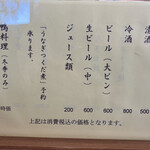 酒
冷酒
ビール(大ビン)
生ビール(中)
ジュース類
「うなぎつくだ煮」予約
承ります。
鴨料理(冬季のみ)
500
800
600
600
200
時価
上記は消費税込の価格となります。